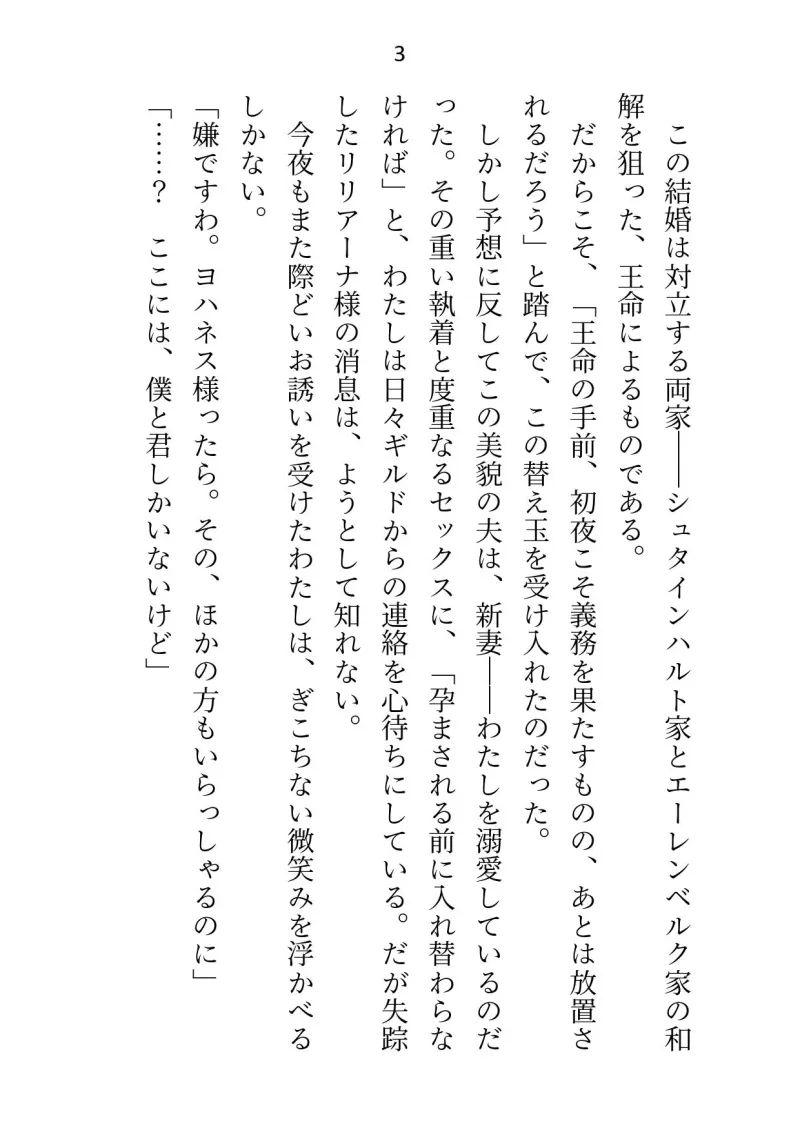 3
この結婚は対立する両家――シュタインハルト家とエーレンベルク家の和
解を狙った、王命によるものである。
だからこそ、「王命の手前、初夜こそ義務を果たすものの、あとは放置さ
れるだろう」と踏んで、この替え玉を受け入れたのだった。
しかし予想に反してこの美貌の夫は、新妻――わたしを溺愛しているのだ
った。その重い執着と度重なるセックスに、「孕まされる前に入れ替わらな
ければ」と、わたしは日々ギルドからの連絡を心待ちにしている。だが失踪
したリリアーナ様の消息は、ようとして知れない。
今夜もまた際どいお誘いを受けたわたしは、ぎこちない微笑みを浮かべる
しかない。
「嫌ですわ。ヨハネス様ったら。その、ほかの方もいらっしゃるのに」
「……？　ここには、僕と君しかいないけど」